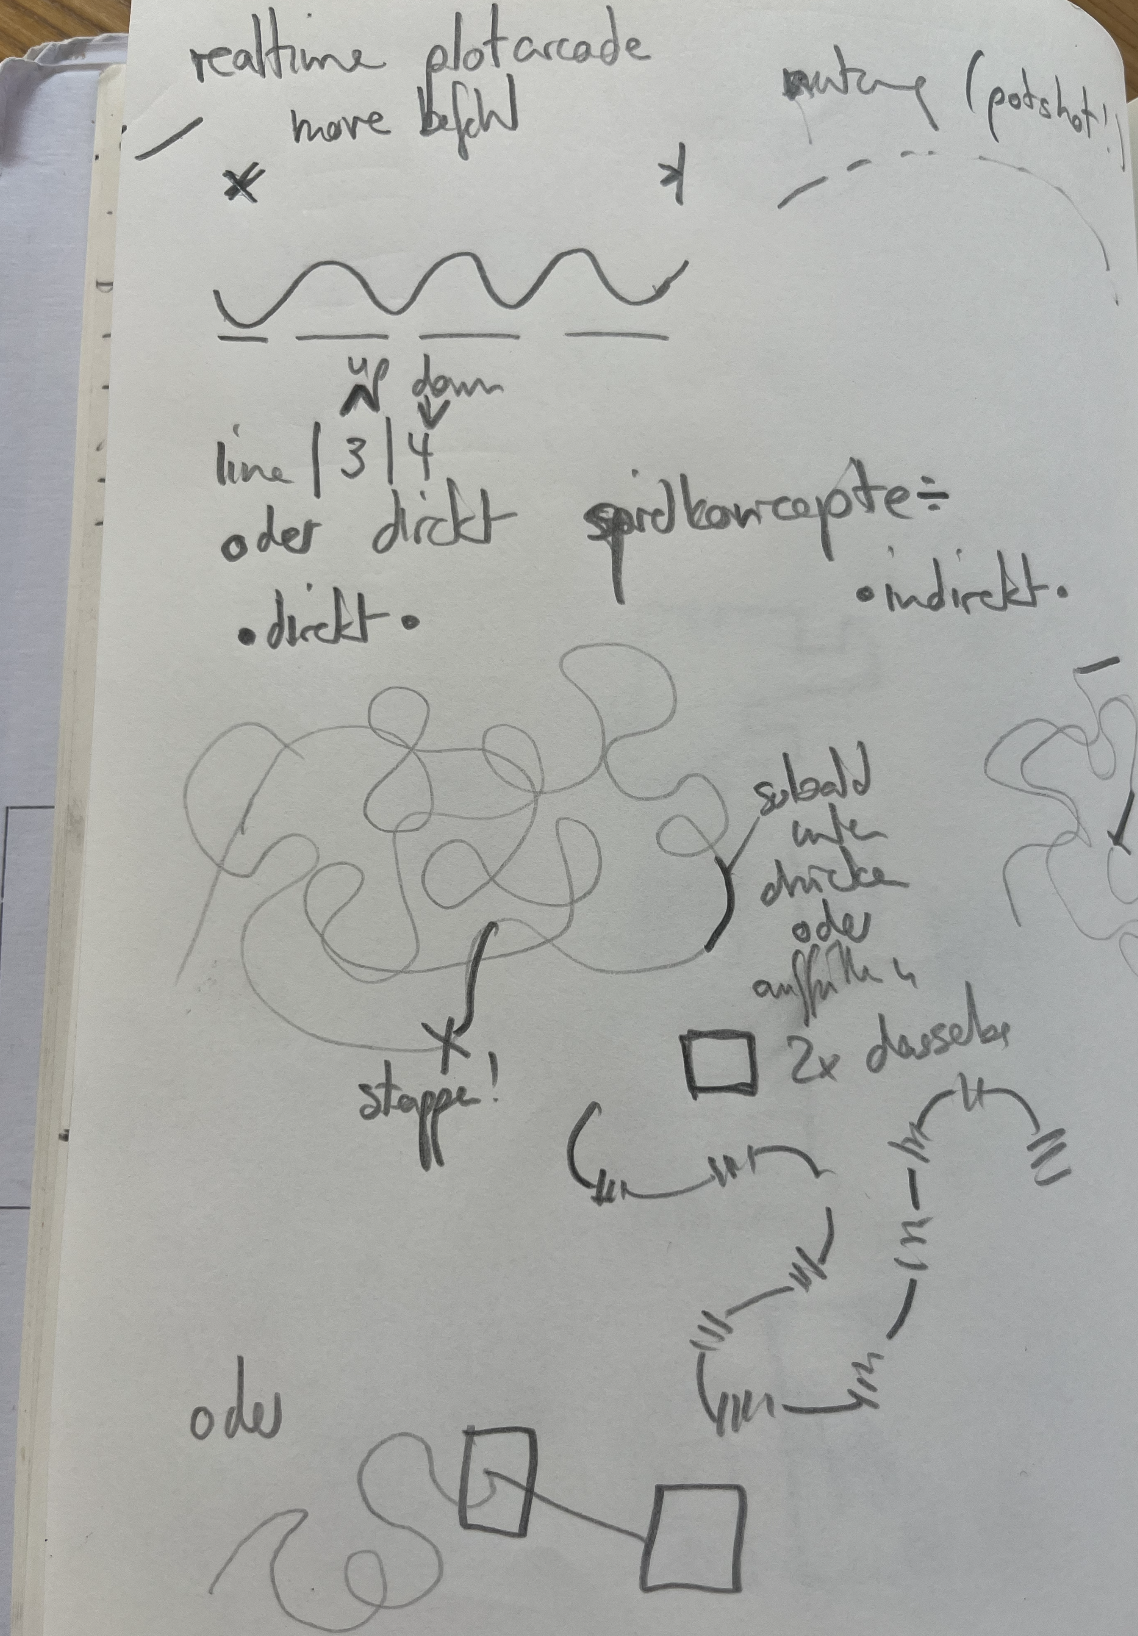 realtime plotarcade
move befehl
(potshot!)
up down
line | 3 | 4
oder direkt
spielkonzepte:
• direkt •
• indirekt •
sobald
unten
drücken
oder
stoppen!
2x dasselbe
oder